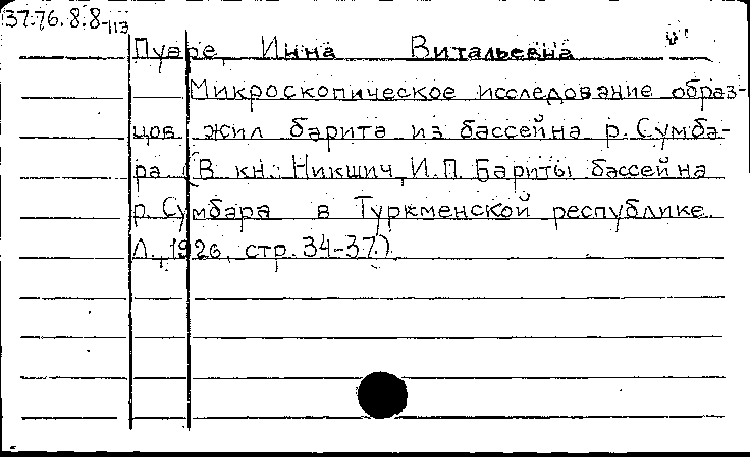 37:76.8.8-113
Пуаре, Инна Витальевна
Микроскопическое исследование образ-
цов жил барита из бассейна р. Сумба-
ра (В кн.: Никшич, И.П. Бариты бассейна
р. Сумбара в Туркменской республике.
Л., 1926, стр. 34-37.)